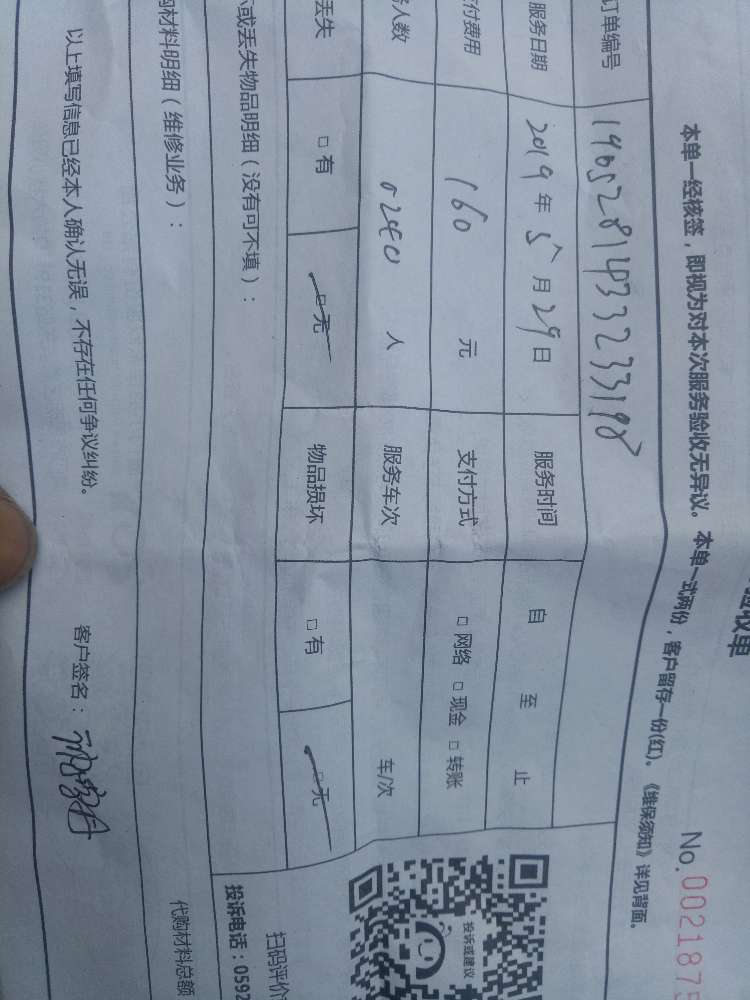 验收单
No.0021875
本单一经核签，即视为对本次服务验收无异议。本单一式两份，客户留存一份(红)。《维保须知》详见背面。
订单编号 1905281433233198
服务日期 2019年5月29日 服务时间 自 至 止
付费用 160 元 支付方式 □网络 □现金 □转账
人数 人 服务车次 车/次
丢失 □有 □无 物品损坏 □有 □无
或丢失物品明细（没有可不填）：
购材料明细（维修业务）：
代购材料总额
以上填写信息已经本人确认无误，不存在任何争议纠纷。 客户签名：
投诉或建议
扫码评价
投诉电话：0592